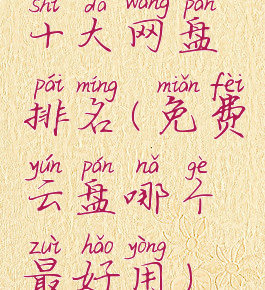 shí dà wǎng pán
十大网盘
pái míng miǎn fèi
排名(免费
yún pán nǎ gè
云盘哪个
zuì hǎo yòng
最好用)